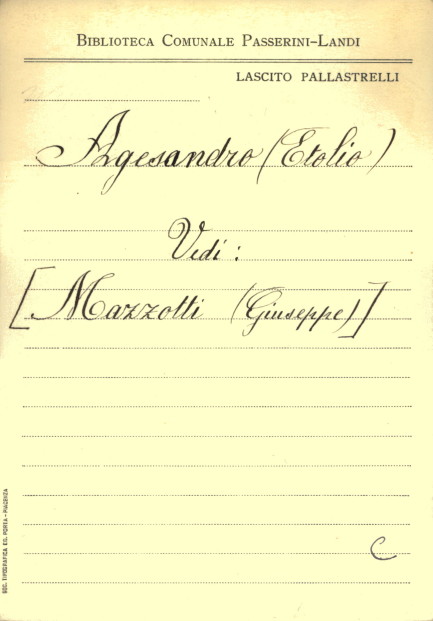 BIBLIOTECA COMUNALE PASSERINI-LANDI
LASCITO PALLASTRELLI
Agesandro (Etolio)
Vedi:
[Mazzotti (Giuseppe)]
C
SOC. TIPOGRAFICA ED. PORTA - PIACENZA